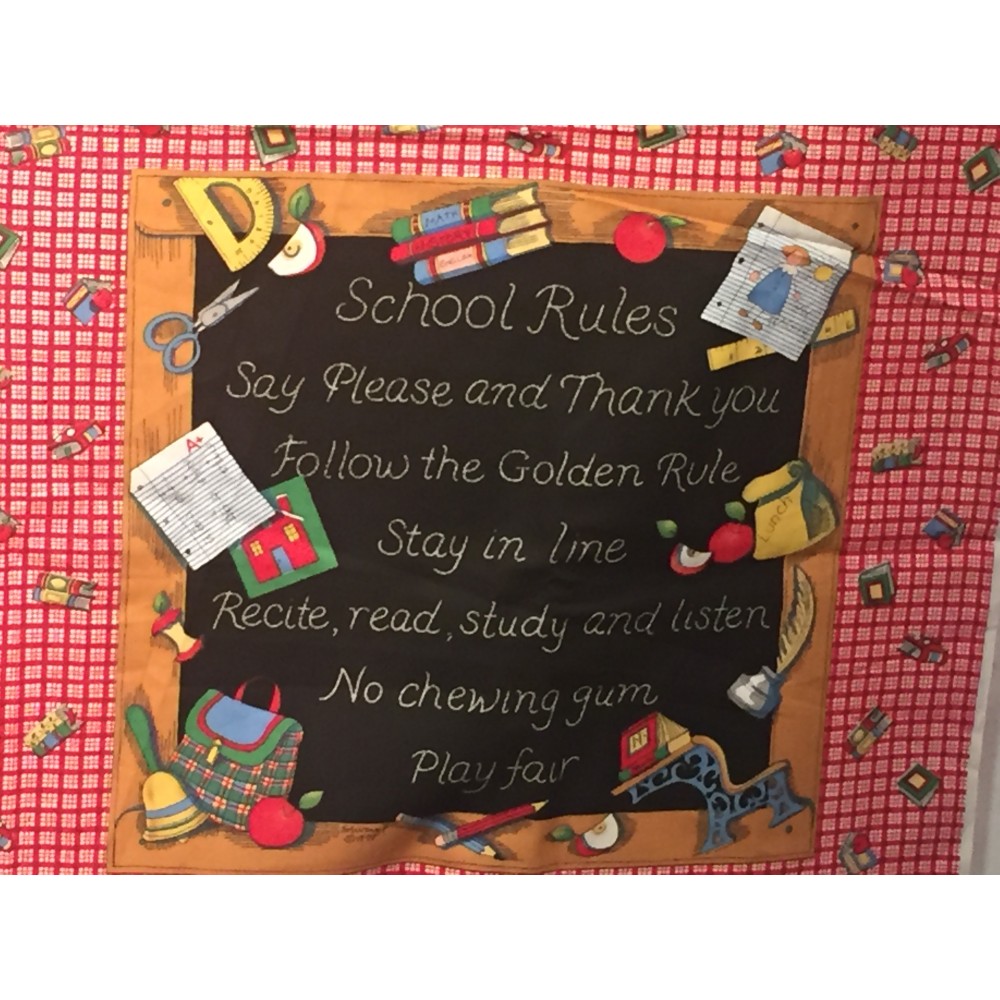 MATH
School Rules
Say Please and Thank you
Follow the Golden Rule
A+
Stay in line
Lunch
Recite, read, study and listen
No chewing gum
Play fair